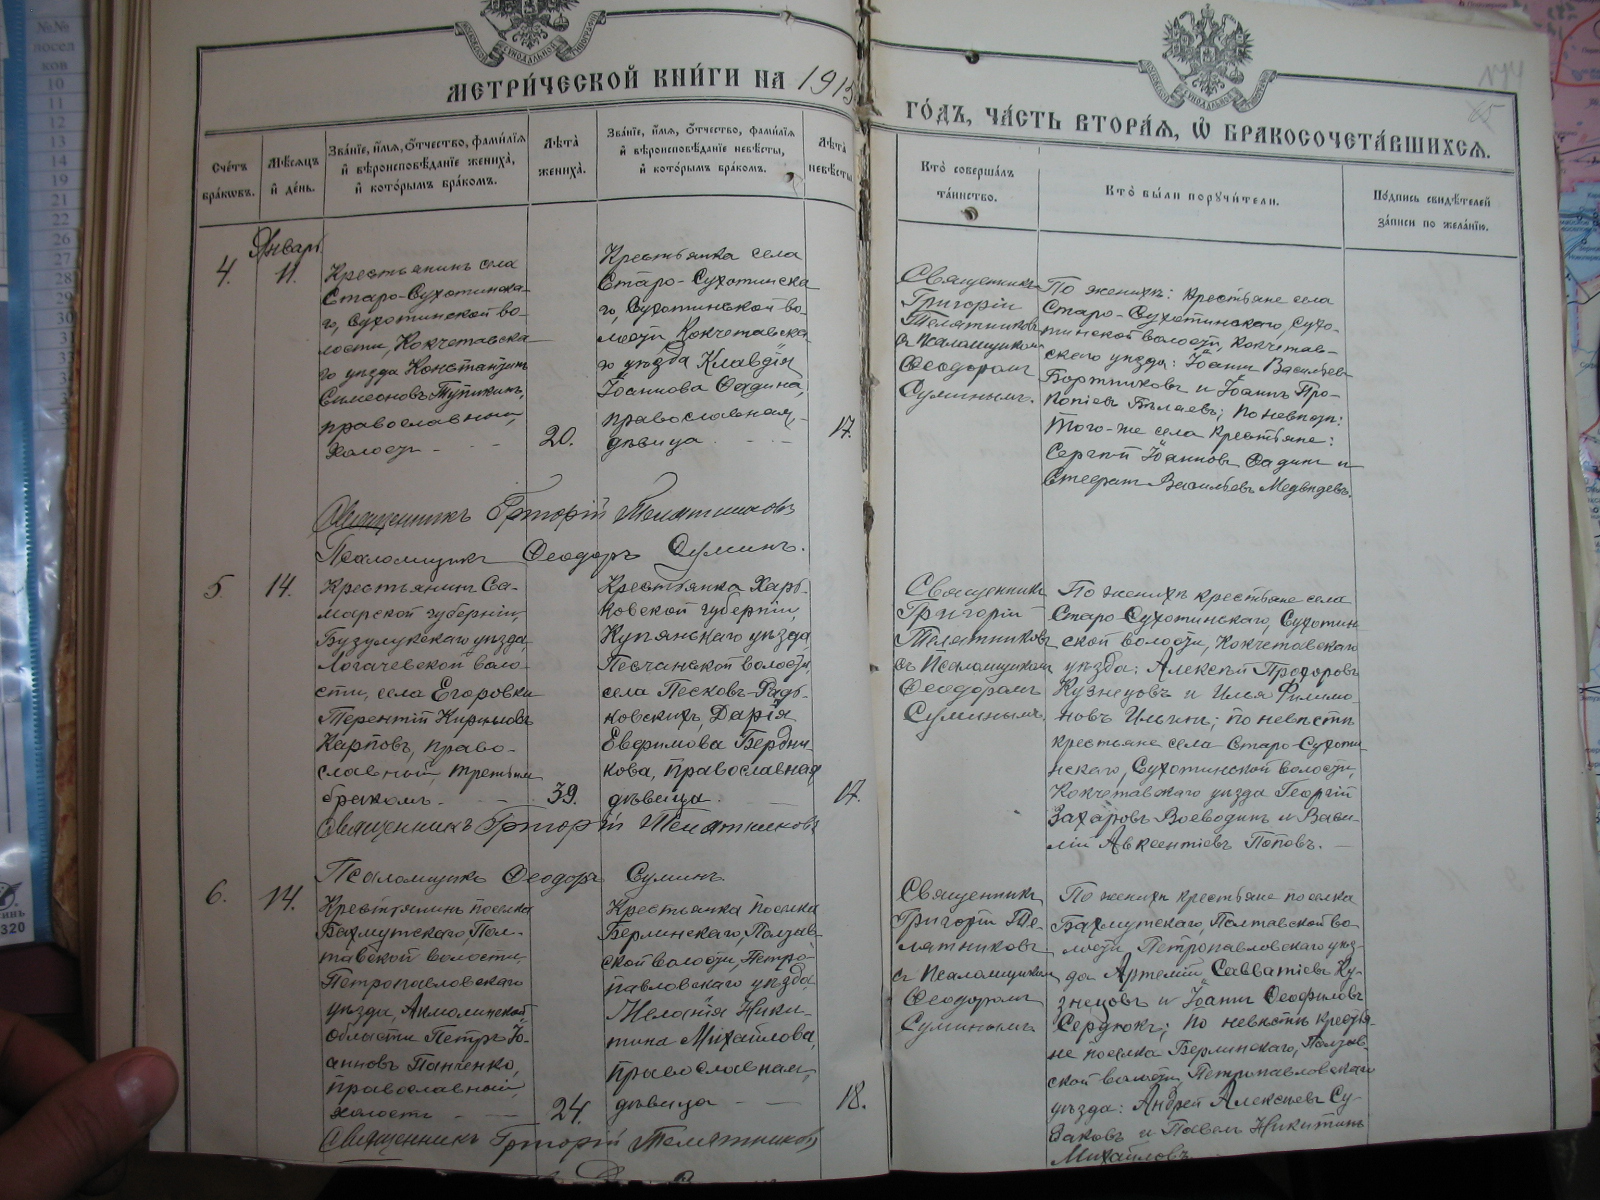 МЕТРИ́ЧЕСКОЙ КНИ́ГИ НА 1913
ГО́ДЪ, ЧА́СТЬ ВТОРА́Я, Ѡ БРАКОСОЧЕТА́ВШИХСЯ.
Сче́тъ бра́ковъ.
Мѣ́сяцъ и де́нь.
Зва́ніе, и́мя, о́тчество, фами́лія и вѣроисповѣ́даніе жениха̀, и кото́рымъ бра́комъ.
Лѣ́та жениха̀.
Зва́ніе, и́мя, о́тчество, фами́лія и вѣроисповѣ́даніе невѣ́сты, и кото́рымъ бра́комъ.
Лѣ́та невѣ́сты
Кто̀ соверша́лъ та́инство.
Кто̀ бы́ли поручи́тели.
По́дпись свидѣ́телей за́писи по жела́нію.
Январь
4.
11.
Крестьянинъ села
Старо-Сухотинска-
го, Сухотинской во-
лости, Кокчетавска-
го уѣзда Константинъ
Симеоновъ Тупикинъ,
православный,
холостъ
20.
Крестьянка села
Старо-Сухотинска
го, Сухотинской во
лости Кокчетавска
го уѣзда Клавдія
православная,
дѣвица
17.
Священникъ
Григорій
Телятниковъ
съ Псаломщикомъ
Ѳеодоромъ
Суминымъ.
По женихѣ: крестьяне села
Старо-Сухотинскаго, Сухо-
тинской волости, Кокчетав-
скаго уѣзда: Іоаннъ Васильевъ
Бортниковъ и Іоаннъ Про-
копіевъ Бѣляевъ; по невѣстѣ:
того-же села крестьяне:
Сергѣй Іоанновъ и
Стефанъ Васильевъ Медвѣдевъ.
Священникъ Григорій Телятниковъ
Псаломщикъ Ѳеодоръ Суминъ.
5.
14.
Крестьянинъ Са-
марской губерніи,
Бузулукскаго уѣзда,
Логачевской воло-
сти, села Егоровки
Терентій Кирилловъ
Карповъ, право-
славный, третьимъ
бракомъ.
39.
Крестьянка Харь-
ковской губерніи,
Купянскаго уѣзда
Песчанской волости,
села Песковъ-Радь-
ковскихъ, Дарія
Евфимова Бердни-
кова, православная
дѣвица.
17.
Священникъ
Григорій
Телятниковъ
съ Псаломщикомъ
Ѳеодоромъ
Суминымъ.
По женихѣ крестьяне села
Старо-Сухотинскаго, Сухотин
ской волости, Кокчетавскаго
уѣзда: Алексѣй Прохоровъ
Кузнецовъ и Илья Филимо
новъ Ильинъ; по невѣстѣ
крестьяне села Старо-Сухоти-
нскаго, Сухотинской волости,
Кокчетавскаго уѣзда Георгій
Захаровъ Воеводинъ и Васи-
лій Авксентіевъ Поповъ.
Священникъ Григорій Телятниковъ
Псаломщикъ Ѳеодоръ Суминъ.
6.
14.
Крестьянинъ поселка
Бахмутскаго, Пол-
тавской волости,
Петропавловскаго
уѣзда, Акмолинской
области Петръ Іо-
анновъ Панченко,
православный,
холостъ
24.
Крестьянка поселка
Берлинскаго, Полтав-
ской волости, Петро-
павловскаго уѣзда
Меланія Ники-
тина Михайлова,
православная,
дѣвица
18.
Священникъ
Григорій Те-
лятниковъ
съ Псаломщикомъ
Ѳеодоромъ
Суминымъ.
По женихѣ крестьяне поселка
Бахмутскаго, Полтавской во-
лости, Петропавловскаго уѣз-
да Артемій Савватіевъ Ку-
знецовъ и Іоаннъ Ѳеофиловъ
Сердюкъ; по невѣстѣ крестья-
не поселка Берлинскаго, Полтав-
ской волости, Петропавловскаго
уѣзда: Андрей Алексѣевъ Су-
даковъ и Павелъ Никитинъ
Михайловъ.
Священникъ Григорій Телятниковъ